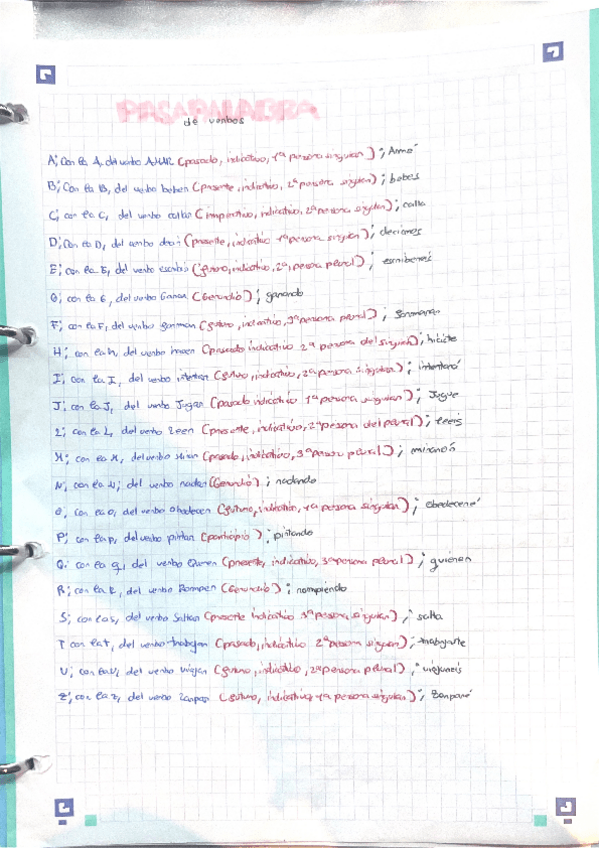 PASAPALABRA
de verbos
A; con la A, del verbo AMAR (pasado, indicativo, 1ª persona singular); Amé
B; Con la B, del verbo beber (Presente, indicativo, 2ª persona, singular); bebes
C; con la C, del verbo callar (imperativo, indicativo, 2ª persona singular); calla
D; Con la D, del verbo decir (presente, indicativo 1ª persona singular); decimos
E; con la E, del verbo escribir (futuro, indicativo, 2ª, persona plural); escribireis
G; con la G, del verbo Ganar (Gerundio); ganando
F; con la F, del verbo formar (futuro, indicativo, 3ª persona plural); formaran
H; con la h, del verbo hacer (pasado indicativo 2ª persona del singular); hiciste
I; con la I, del verbo intentar (futuro, indicativo, 2ª persona singular); intentará
J; con la J, del verbo Jugar (pasado indicativo 1ª persona singular); Jugue
L; con la L, del verbo Leer (presente, indicativo, 2ª persona del plural); leeis
M; con la M, del verbo Mirar (pasado, indicativo, 3ª persona plural); miraron
N; con la N; del verbo nadar (Gerundio); nadando
O, con la O; del verbo Obedecer (futuro, indicativo, 1ª persona singular); obedeceré
P; con la P, del verbo pintar (participio); pintando
Q; con la q, del verbo Querer (presente, indicativo, 3ª persona plural); quieren
R; con la R, del verbo Romper (Gerundio); rompiendo
S; con la S, del verbo Saltar (presente indicativo 3ª persona, singular); salta
T con la t, del verbo trabajar (pasado, indicativo 2ª persona singular); trabajaste
V; con la V, del verbo viajar (futuro, indicativo, 2ª persona plural); viajareis
Z; con la Z, del verbo Zarpar (futuro, indicativo, 1ª persona singular); Zarparé